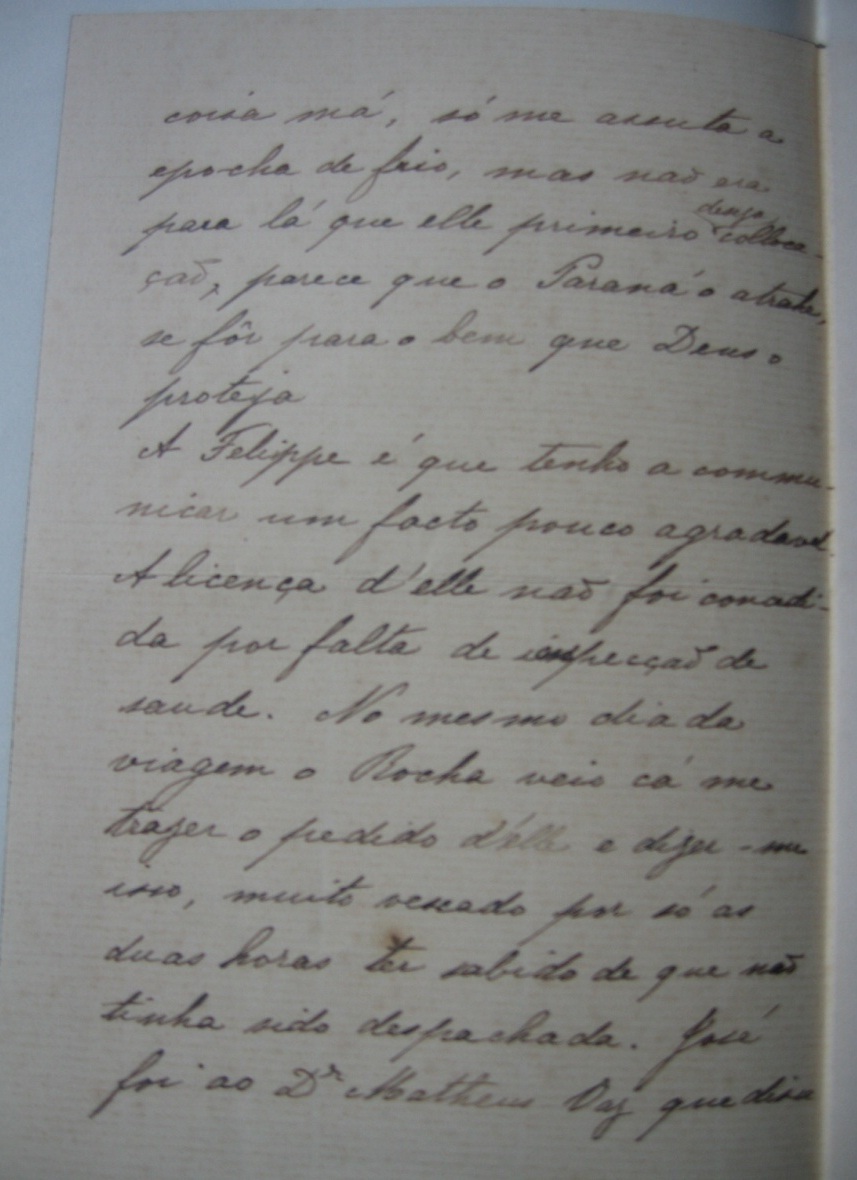 coisa má, só me assusta a
epocha de frio, mas não era
para lá que elle primeiro deseja colloca-
ção, parece que o Paraná o atrahe,
se fôr para o bem que Deus o
proteja
A Felippe é que tenho a commu-
nicar um facto pouco agradavel.
A licença d'elle não foi concedi-
da por falta de inspecção de
saude. No mesmo dia da
viagem o Rocha veio cá me
trazer o pedido d'elle e dizer-me
isso, muito vexado por só as
duas horas ter sabido de que não
tinha sido despachada. José
foi ao Dr Matheus Vaz que disse